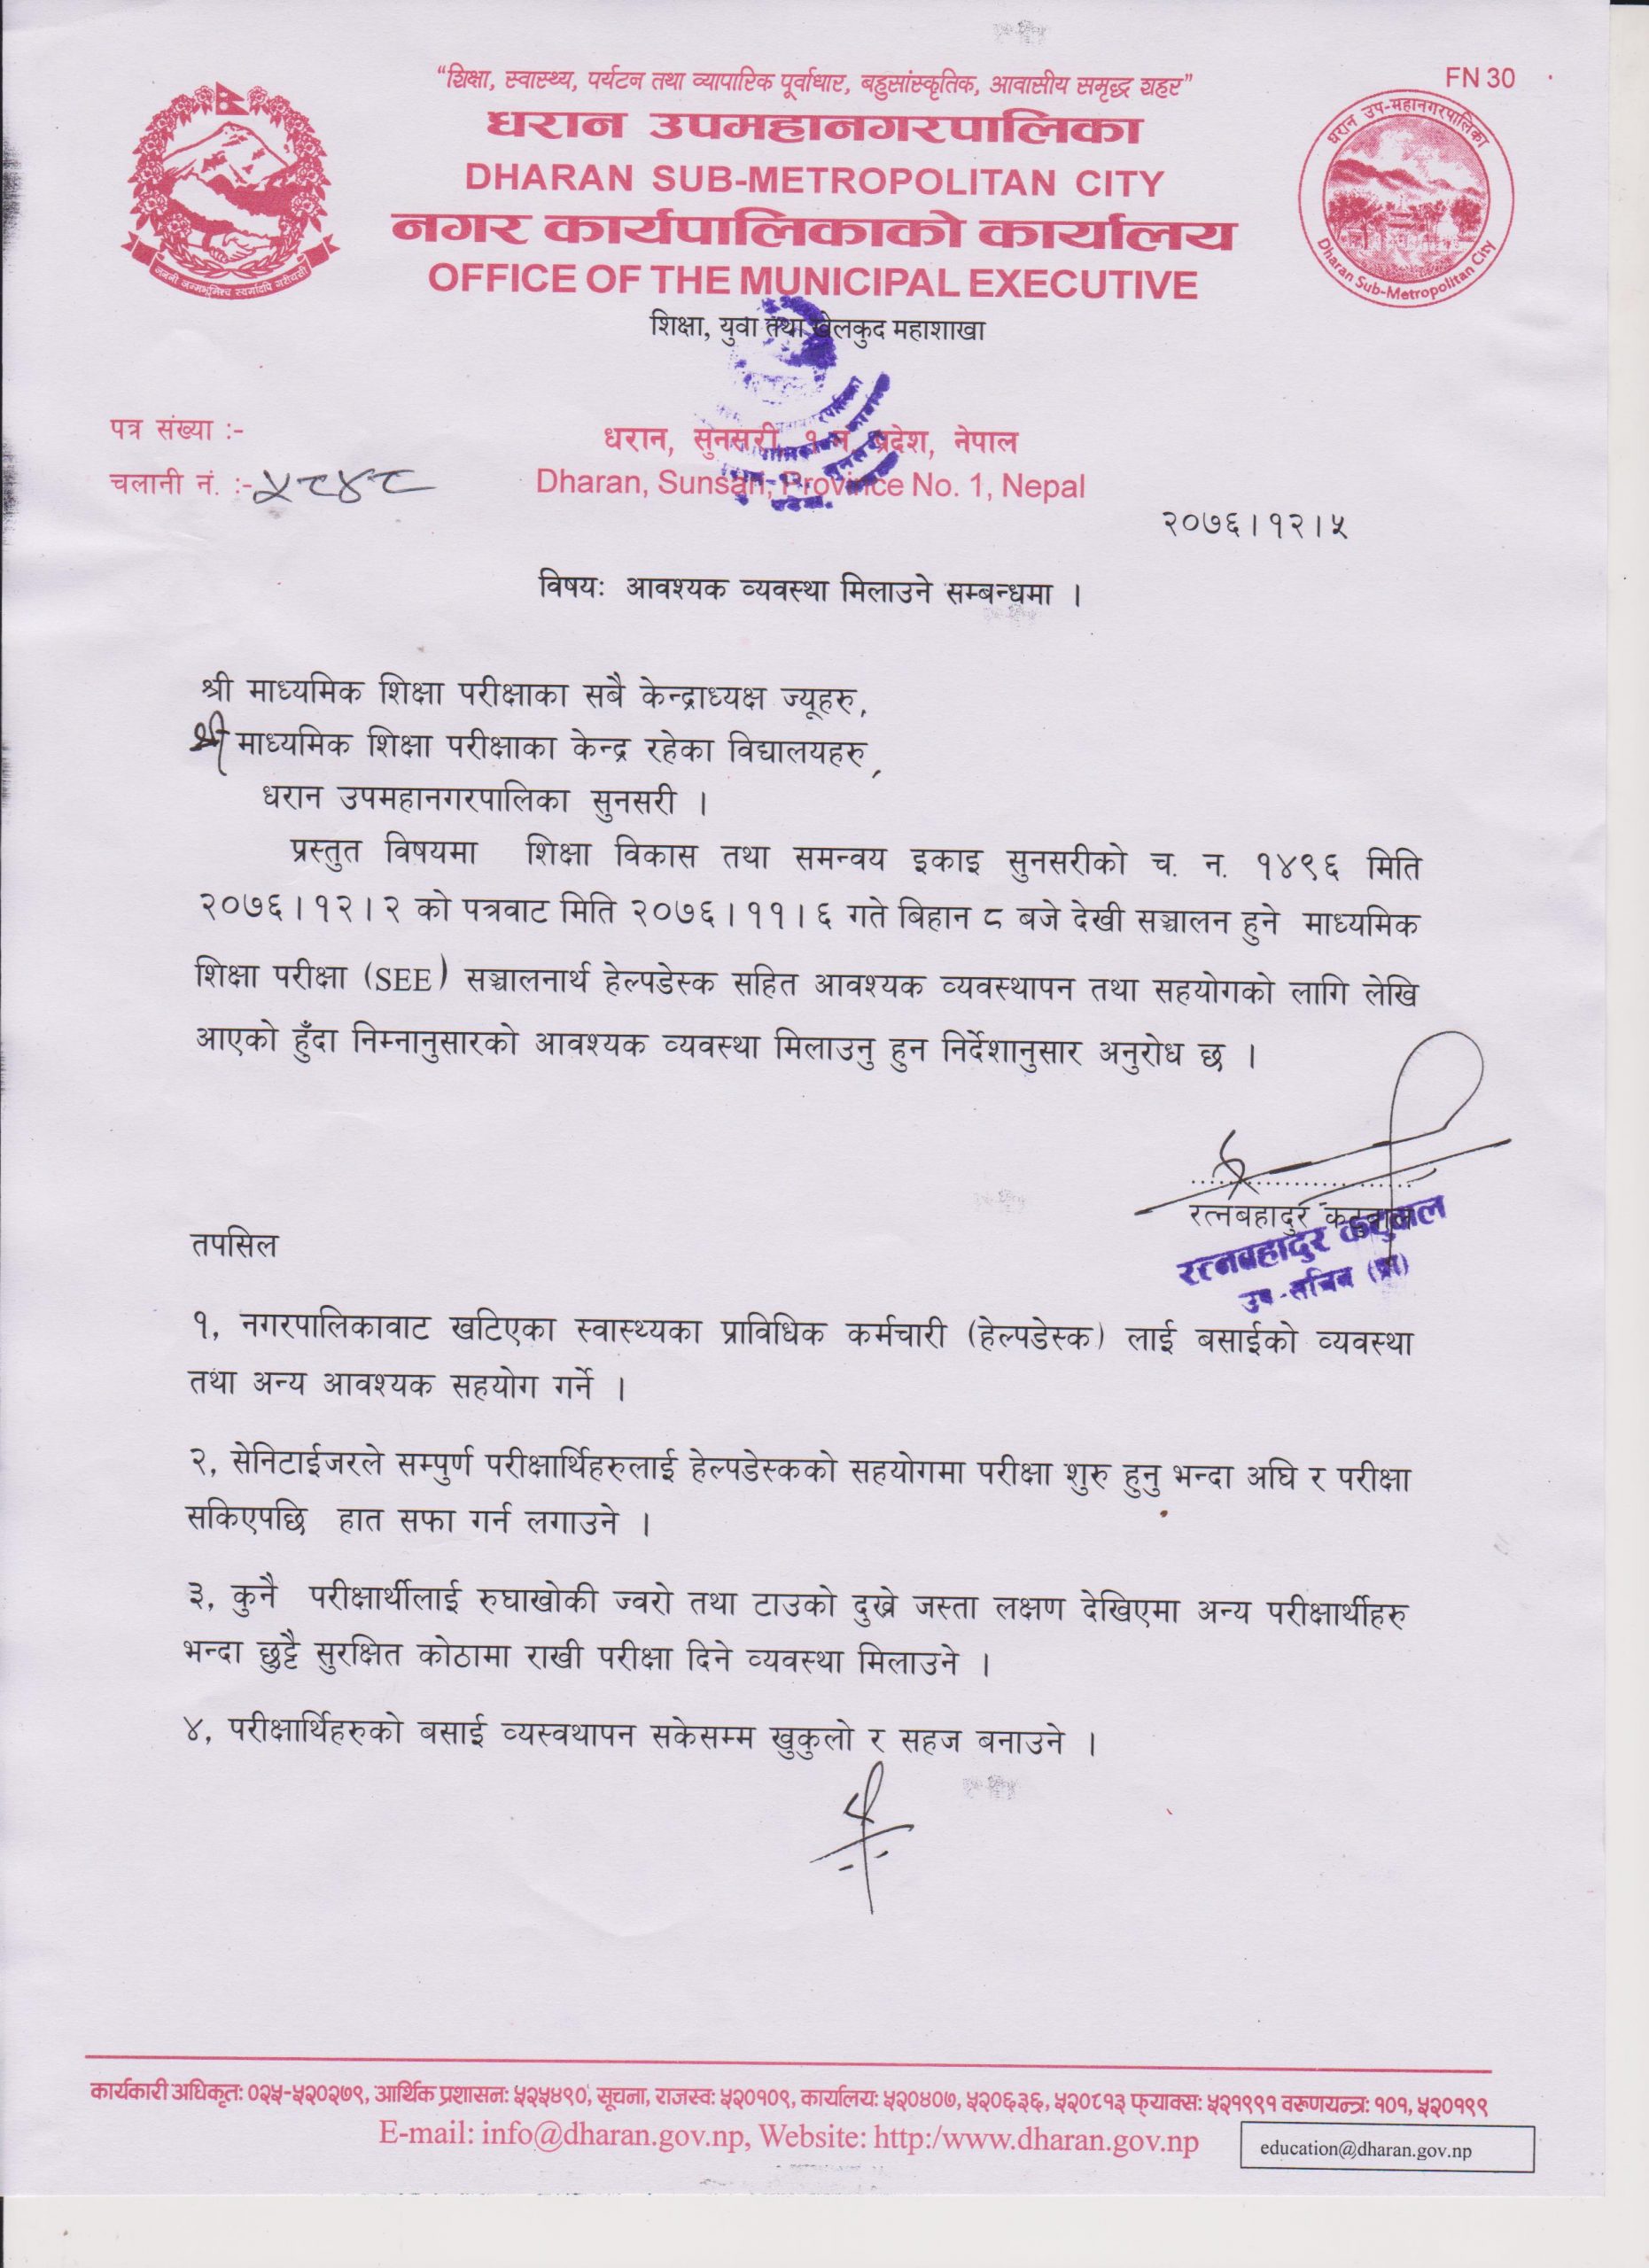 "शिक्षा, स्वास्थ्य, पर्यटन तथा व्यापारिक पूर्वाधार, बहुसांस्कृतिक, आवासीय समृद्ध शहर"
FN 30
धरान उपमहानगरपालिका
DHARAN SUB-METROPOLITAN CITY
नगर कार्यपालिकाको कार्यालय
OFFICE OF THE MUNICIPAL EXECUTIVE
जननी जन्मभूमिश्च स्वर्गादपि गरीयसी
धरान उप-महानगरपालिका
Dharan Sub-Metropolitan City
शिक्षा, युवा तथा खेलकुद महाशाखा
पत्र संख्या :-
धरान, सुनसरी, १ नं. प्रदेश, नेपाल
चलानी नं. :- ५८४८
Dharan, Sunsari, Province No. 1, Nepal
२०७६।१२।५
विषयः आवश्यक व्यवस्था मिलाउने सम्बन्धमा ।
श्री माध्यमिक शिक्षा परीक्षाका सबै केन्द्राध्यक्ष ज्यूहरु,
श्री माध्यमिक शिक्षा परीक्षाका केन्द्र रहेका विद्यालयहरु,
धरान उपमहानगरपालिका सुनसरी ।
प्रस्तुत विषयमा शिक्षा विकास तथा समन्वय इकाइ सुनसरीको च. न. १४९६ मिति
२०७६।१२।२ को पत्रवाट मिति २०७६।११।६ गते बिहान ८ बजे देखी सञ्चालन हुने माध्यमिक
शिक्षा परीक्षा (SEE) सञ्चालनार्थ हेल्पडेस्क सहित आवश्यक व्यवस्थापन तथा सहयोगको लागि लेखि
आएको हुँदा निम्नानुसारको आवश्यक व्यवस्था मिलाउनु हुन निर्देशानुसार अनुरोध छ ।
रत्नबहादुर कटुवाल
रत्नबहादुर कटुवाल
उप-सचिव (प्रा)
तपसिल
१, नगरपालिकावाट खटिएका स्वास्थ्यका प्राविधिक कर्मचारी (हेल्पडेस्क) लाई बसाईको व्यवस्था
तथा अन्य आवश्यक सहयोग गर्ने ।
२, सेनिटाईजरले सम्पुर्ण परीक्षार्थिहरुलाई हेल्पडेस्कको सहयोगमा परीक्षा शुरु हुनु भन्दा अघि र परीक्षा
सकिएपछि हात सफा गर्न लगाउने ।
३, कुनै परीक्षार्थीलाई रुघाखोकी ज्वरो तथा टाउको दुख्ने जस्ता लक्षण देखिएमा अन्य परीक्षार्थीहरु
भन्दा छुट्टै सुरक्षित कोठामा राखी परीक्षा दिने व्यवस्था मिलाउने ।
४, परीक्षार्थिहरुको बसाई व्यस्वथापन सकेसम्म खुकुलो र सहज बनाउने ।
कार्यकारी अधिकृतः ०२५-५२०२७९, आर्थिक प्रशासनः ५२५४९०, सूचना, राजस्वः ५२०१०९, कार्यालयः ५२०४०७, ५२०६३६, ५२०८१३ फ्याक्सः ५२१९९१ वरुणयन्त्रः १०१, ५२०१९९
E-mail: info@dharan.gov.np, Website: http:/www.dharan.gov.np
education@dharan.gov.np